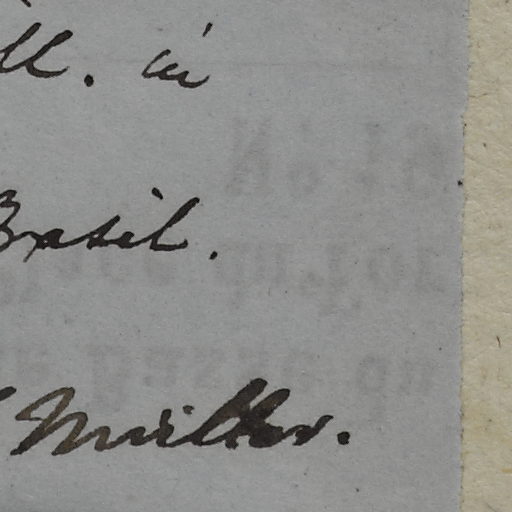 ll. in
Brasil.
Müller.